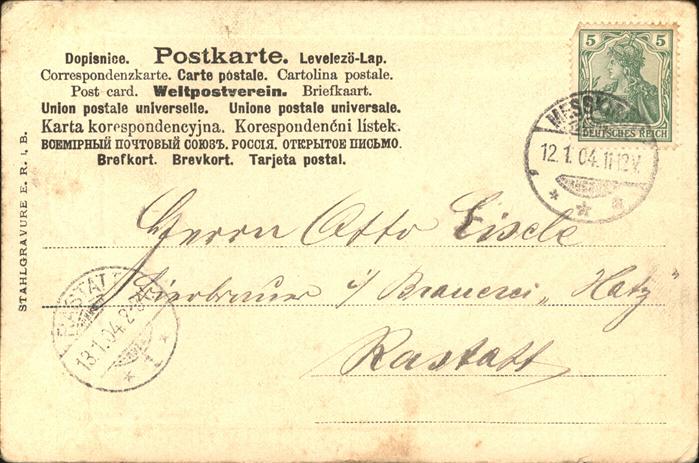 Dopisnice. Postkarte. Levelezö-Lap.
Correspondenzkarte. Carte postale. Cartolina postale.
Post card. Weltpostverein. Briefkaart.
Union postale universelle. Unione postale universale.
Karta korespondencyjna. Korespondenční listek.
ВСЕМІРНЫЙ ПОЧТОВЫЙ СОЮЗЪ. РОССІЯ. ОТКРЫТОЕ ПИСЬМО.
Brefkort. Brevkort. Tarjeta postal.
5 5
DEUTSCHES REICH
12.1.04.11-12V.
STAHLGRAVURE E. R. i. B.
Herrn Otto Eisele
Bierbrauer i/ Brauerei „Hatz"
Rastatt
13.1.04.